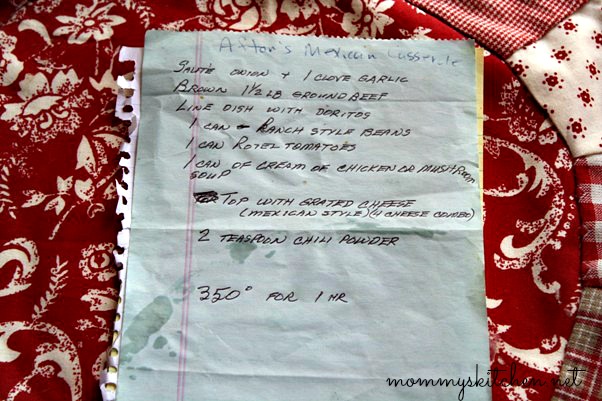 Afton's Mexican Casserole
SAUTE ONION + 1 CLOVE GARLIC
BROWN 1 1/2 LB GROUND BEEF
LINE DISH WITH DORITOS
1 CAN RANCH STYLE BEANS
1 CAN ROTEL TOMATOES
1 CAN OF CREAM OF CHICKEN OR MUSHROOM
SOUP
TOP WITH GRATED CHEESE
(MEXICAN STYLE) (4 CHEESE COMBO)
2 TEASPOON CHILI POWDER
350° FOR 1 HR
mommyskitchen.net